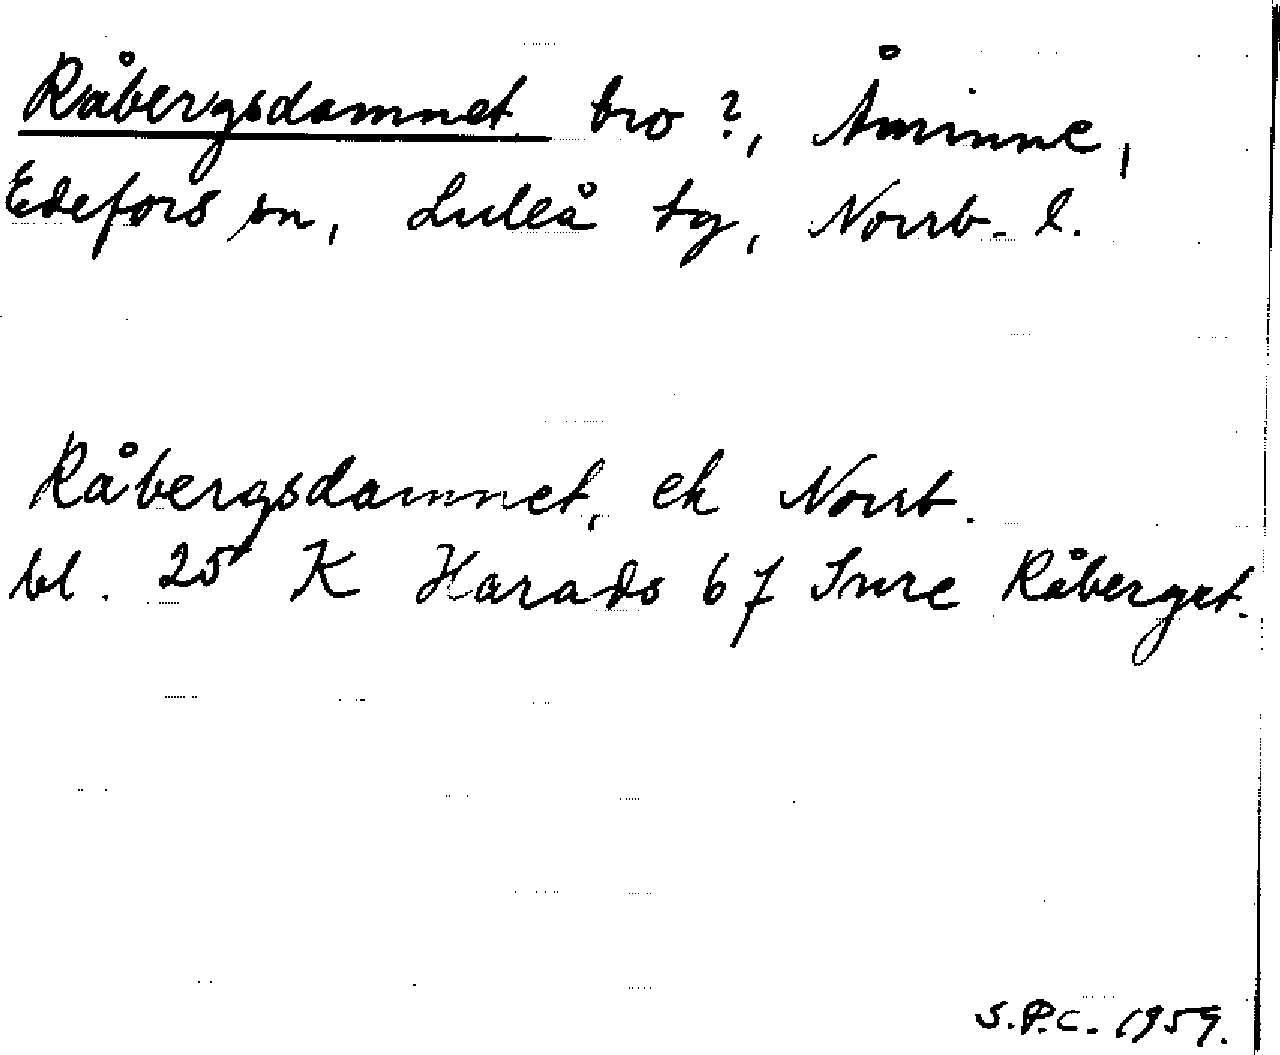 Råbergsdamnet bro ?, Åminne,
Edefors sn, Luleå tg, Norrb. l.
Råbergsdamnet, ek Norrb.
bl. 25 K Harads 67 Inre Råberget.
S.P.C. 1959.